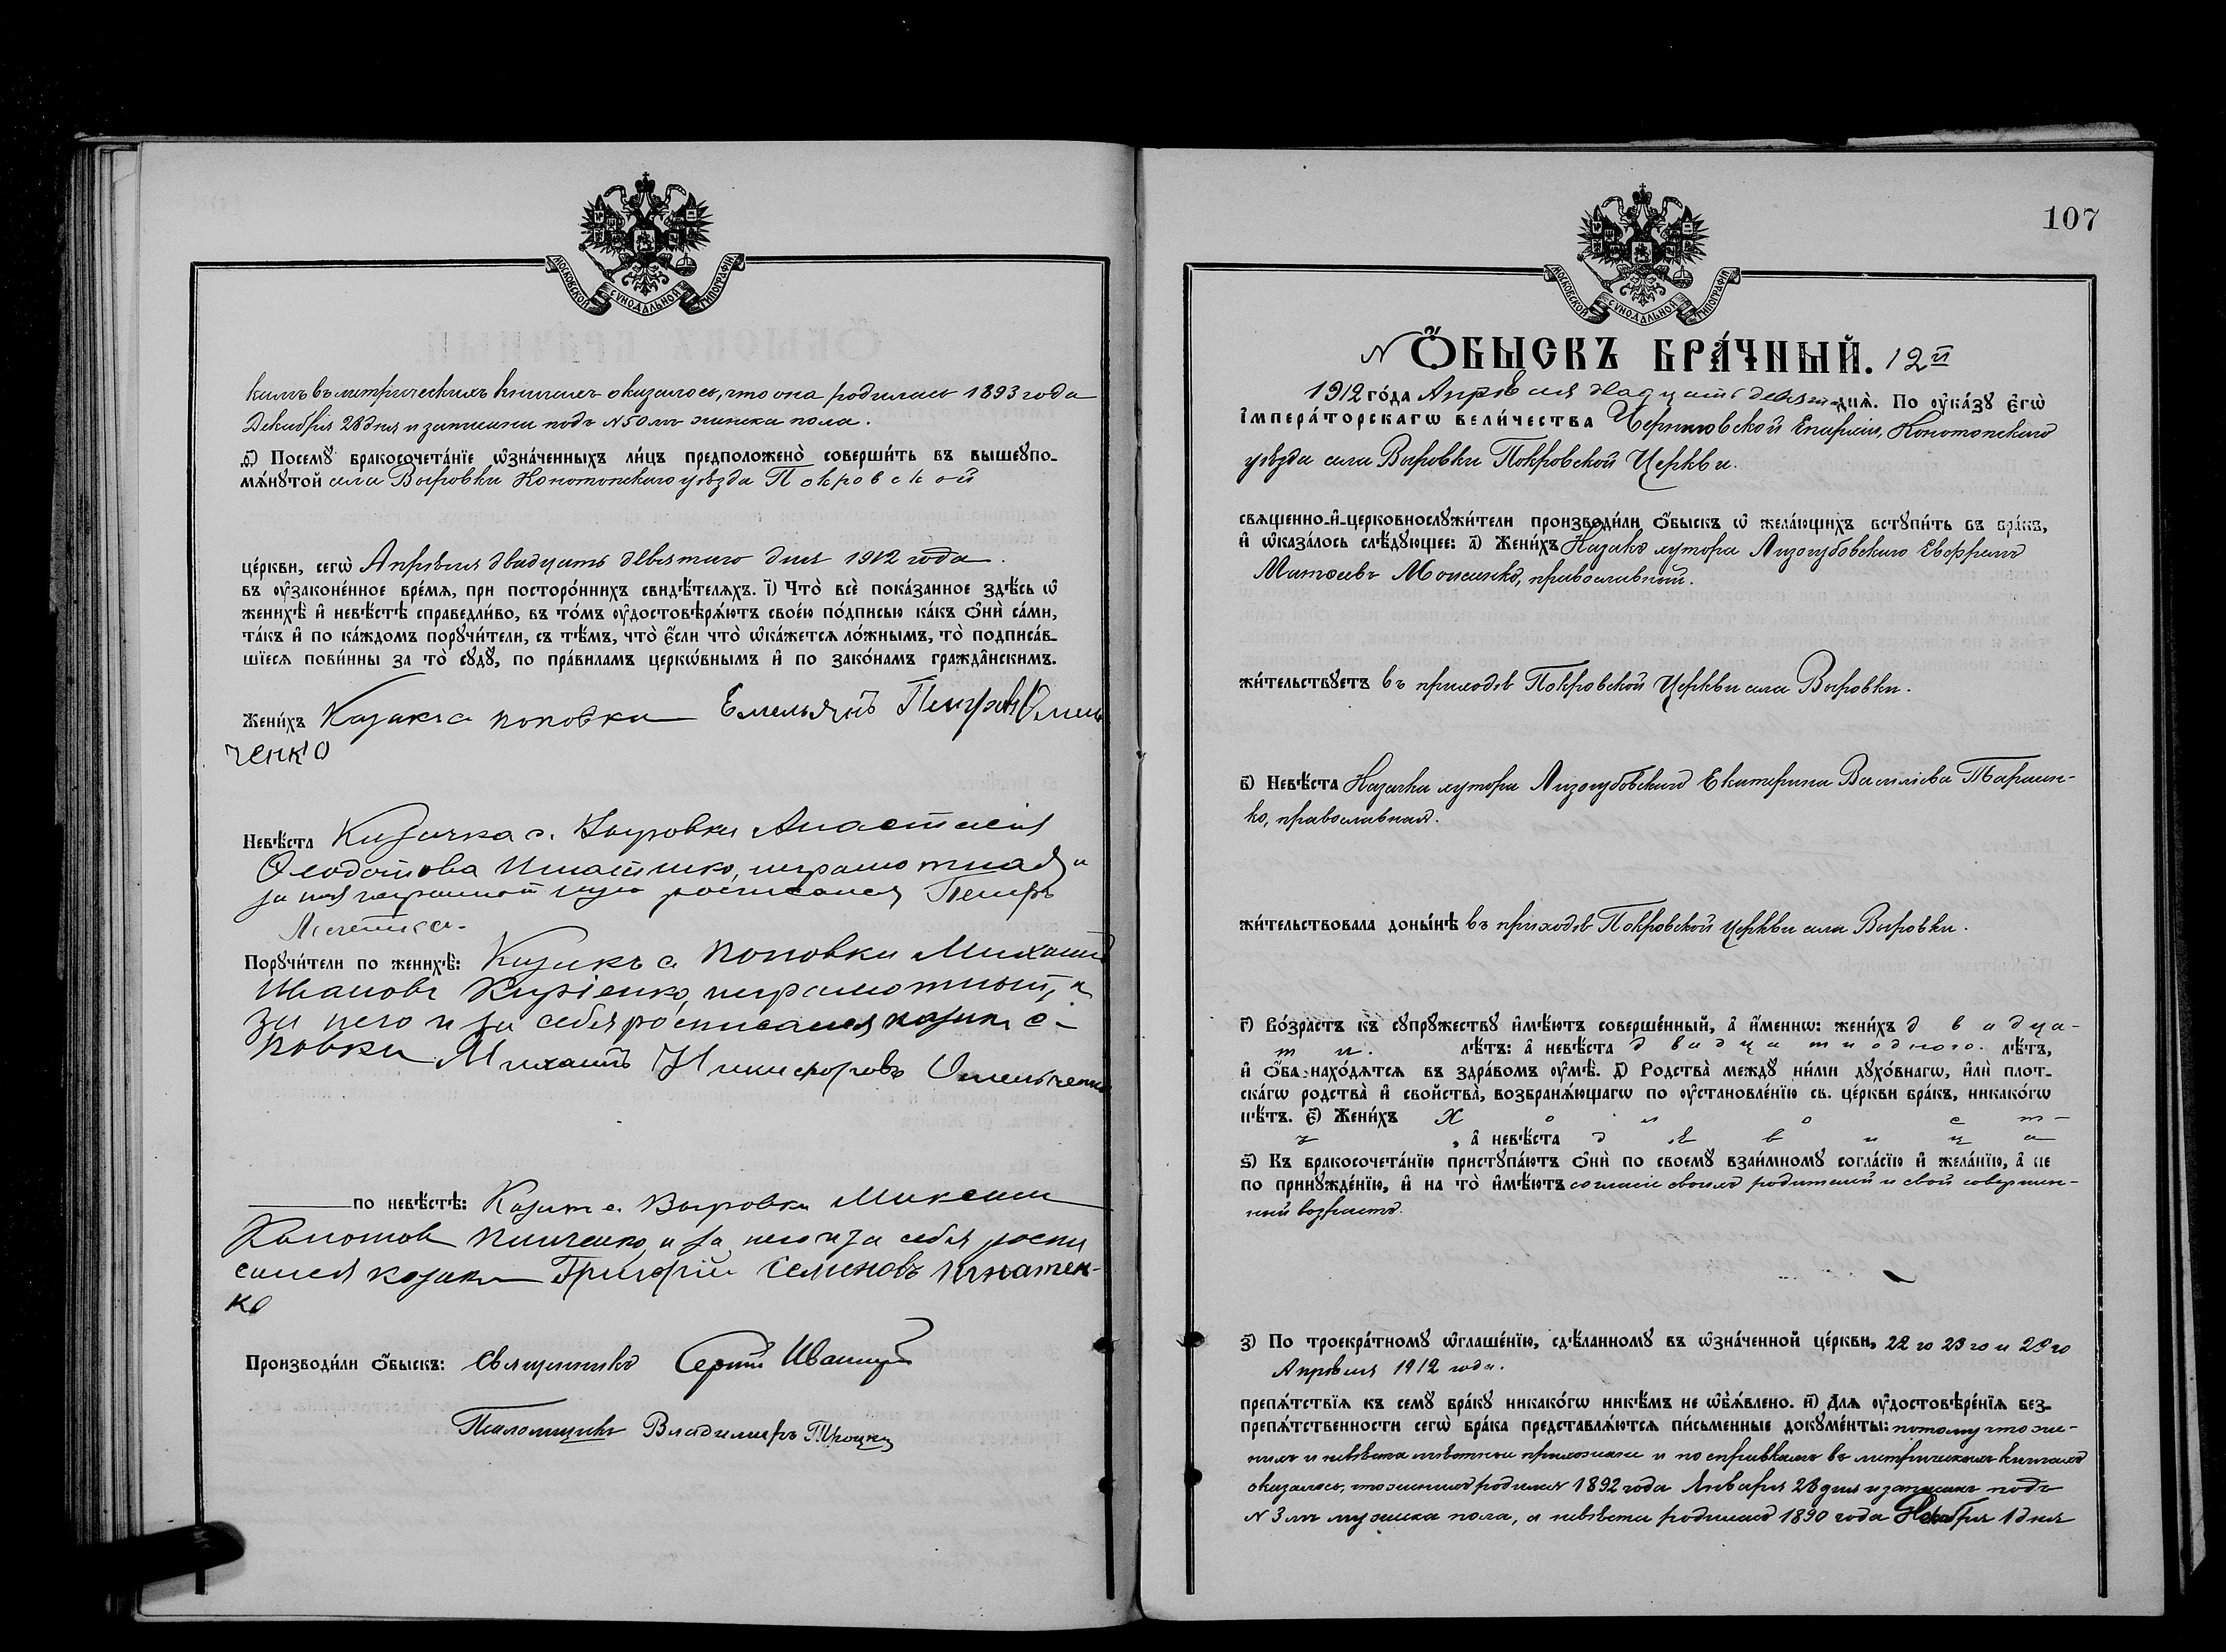 МОСКОВСКОЙ СѴНОДАЛЬНОЙ ТИПОГРАФІИ
кимъ въ метрическихъ книгахъ оказалось, что она родилась 1893 года
Декабря 28 дня и записана подъ №50мъ женска пола.
Ѳ҃) Посемꙋ̀ бракосочета́нїе ѡ҆зна́ченныхъ ли́цъ предположено̀ соверши́ть въ вышеꙋпо-
мѧ́нꙋтой села Выровки Конотопскаго уѣзда Покровской
це́ркви, сегѡ̀ Апрѣля двадцать девятаго дня 1912 года.
въ ᲂу҆законе́нное вре́мѧ, при посторо́ннихъ свидѣ́телѧхъ. І҃) Что̀ всѐ пока́занное здѣ́сь ѡ҆
женихѣ̀ и҆ невѣ́стѣ справедли́во, въ то́мъ ᲂу҆достовѣрѧ́ютъ свое́ю по́дписью ка́къ ѻ҆нѝ са́ми,
та́къ и҆ по ка́ждомъ порꙋчи́тели, съ тѣ́мъ, что̀ є҆́сли что̀ ѡ҆ка́жетсѧ ло́жнымъ, то̀ подписа́в-
шїесѧ пови́нны за то̀ сꙋдꙋ̀, по пра́виламъ церкѡ́внымъ и҆ по зако́намъ гражда́нскимъ.
Жени́хъ Казакъ с поповки Емельянъ Петровъ Омель
ченко
Невѣ́ста Казачка с. Выровки Анастасія
Ѳеодотова Игнатенко, неграмотная, а
за нея неграмотную росписался Петръ
Порꙋчи́тели по женихѣ̀: Казакъ с поповки Михаилъ
Ивановъ Киріенко, неграмотный, а
за него и за себя росписался казакъ с
повки Михаилъ Никифоровъ Омельченко
по невѣ́стѣ: Казакъ с. Выровки Максим
и за него и за себя роспи
сался козакъ Григорій Семеновъ Игнатен-
ко
Производи́ли ѻ҆́быскъ: Священникъ Сергій Иваницкій
Псаломщикъ Владимиръ Троцкій
107
МОСКОВСКОЙ СѴНОДАЛЬНОЙ ТИПОГРАФІИ
N Ѻ҆́БЫСКЪ БРА́ЧНЫЙ. 12й
1912 го́да Апрѣля двадцать девят днѧ̀. По ᲂу҆ка́зꙋ є҆гѡ̀
і҆мпера́торскагѡ вели́чества Черниговской Епархіи, Конотопскаго
уѣзда села Выровки Покровской Церкви.
свѧщенно-и҆-церковнослꙋжи́тели производи́ли ѻ҆́быскъ ѡ҆ жела́ющихъ встꙋпи́ть въ бра́къ,
и҆ ѡ҆каза́лось слѣ́дꙋющее: а҃) Жени́хъ Казакъ хутора Лизогубовскаго Евфримъ
Матѳеевъ Моисенко, православный.
жи́тельствꙋетъ въ приходѣ Покровской Церкви села Выровки.
в҃) Невѣ́ста Казачка хутора Лизогубовскаго Екатерина Василіева Тарасен-
ко, православная.
жи́тельствовала доны́нѣ въ приходѣ Покровской Церкви села Выровки.
г҃) Во́зрастъ къ сꙋпрꙋ́жествꙋ и҆мѣ́ютъ соверше́нный, а҆ и҆́меннѡ: жени́хъ двадца-
ти. лѣ́тъ: а҆ невѣ́ста двадцати одного. лѣ́тъ,
и҆ ѻ҆́ба нахо́дѧтсѧ въ здра́вомъ ᲂу҆мѣ̀. д҃) Родства̀ междꙋ̀ ни́ми дꙋхо́внагѡ, и҆лѝ плот-
ска́гѡ родства̀ и҆ свойства̀, возбранѧ́ющагѡ по ᲂу҆становле́нїю св. це́ркви бра́къ, никако́гѡ
нѣ́тъ. є҃) Жени́хъ холост-
ъ, а҆ невѣ́ста дѣвица
ѕ҃) Къ бракосочета́нїю пристꙋпа́ютъ ѻ҆нѝ по своемꙋ̀ взаи́мномꙋ согла́сїю и҆ жела́нїю, а҆ не
по принꙋжде́нїю, и҆ на то̀ и҆мѣ́ютъ согласіе своихъ родителей и свой совершен-
ный возрастъ.
з҃) По троекра́тномꙋ ѡ҆глаше́нїю, сдѣ́ланномꙋ въ ѡ҆зна́ченной це́ркви, 22го 23го и 29го
Апрѣля 1912 года.
препѧ́тствїѧ къ семꙋ̀ бра́кꙋ никако́гѡ никѣ́мъ не ѡ҆б̾ѧ́влено. и҃) Длѧ ᲂу҆достовѣре́нїѧ без-
препѧ́тственности сегѡ̀ бра́ка представлѧ́ютсѧ пи́сьменные докꙋме́нты: потому что же-
нихъ и невѣста извѣстны прихожане и по справкамъ въ метрическихъ книгахъ
оказалось, что женихъ родился 1892 года Января 28 дня и записанъ подъ
N 3мъ мужска пола, а невѣста родилась 1890 года Ноября 1 дня